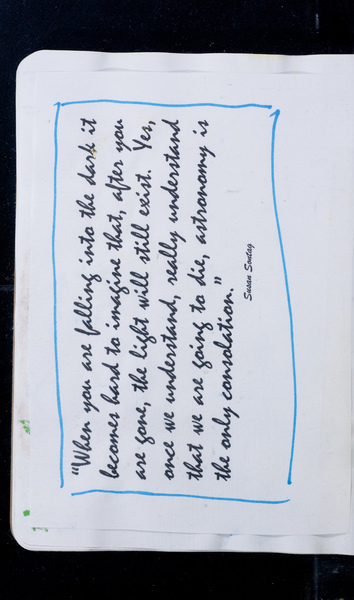 "When you are falling into the dark it
becomes hard to imagine that, after you
are gone, the light will still exist. Yes,
once we understand, really understand
that we are going to die, astronomy is
the only consolation."
Susan Sontag